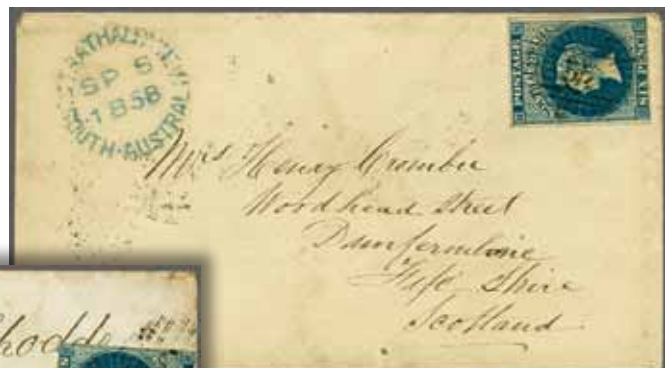 STRATHALBYN
SP 5
1858
SOUTH·AUSTRALIA
POSTAGE
SIX PENCE
Mrs Henry Crombie
Woodhead Street
Dumfermline
Fife Shire
Scotland